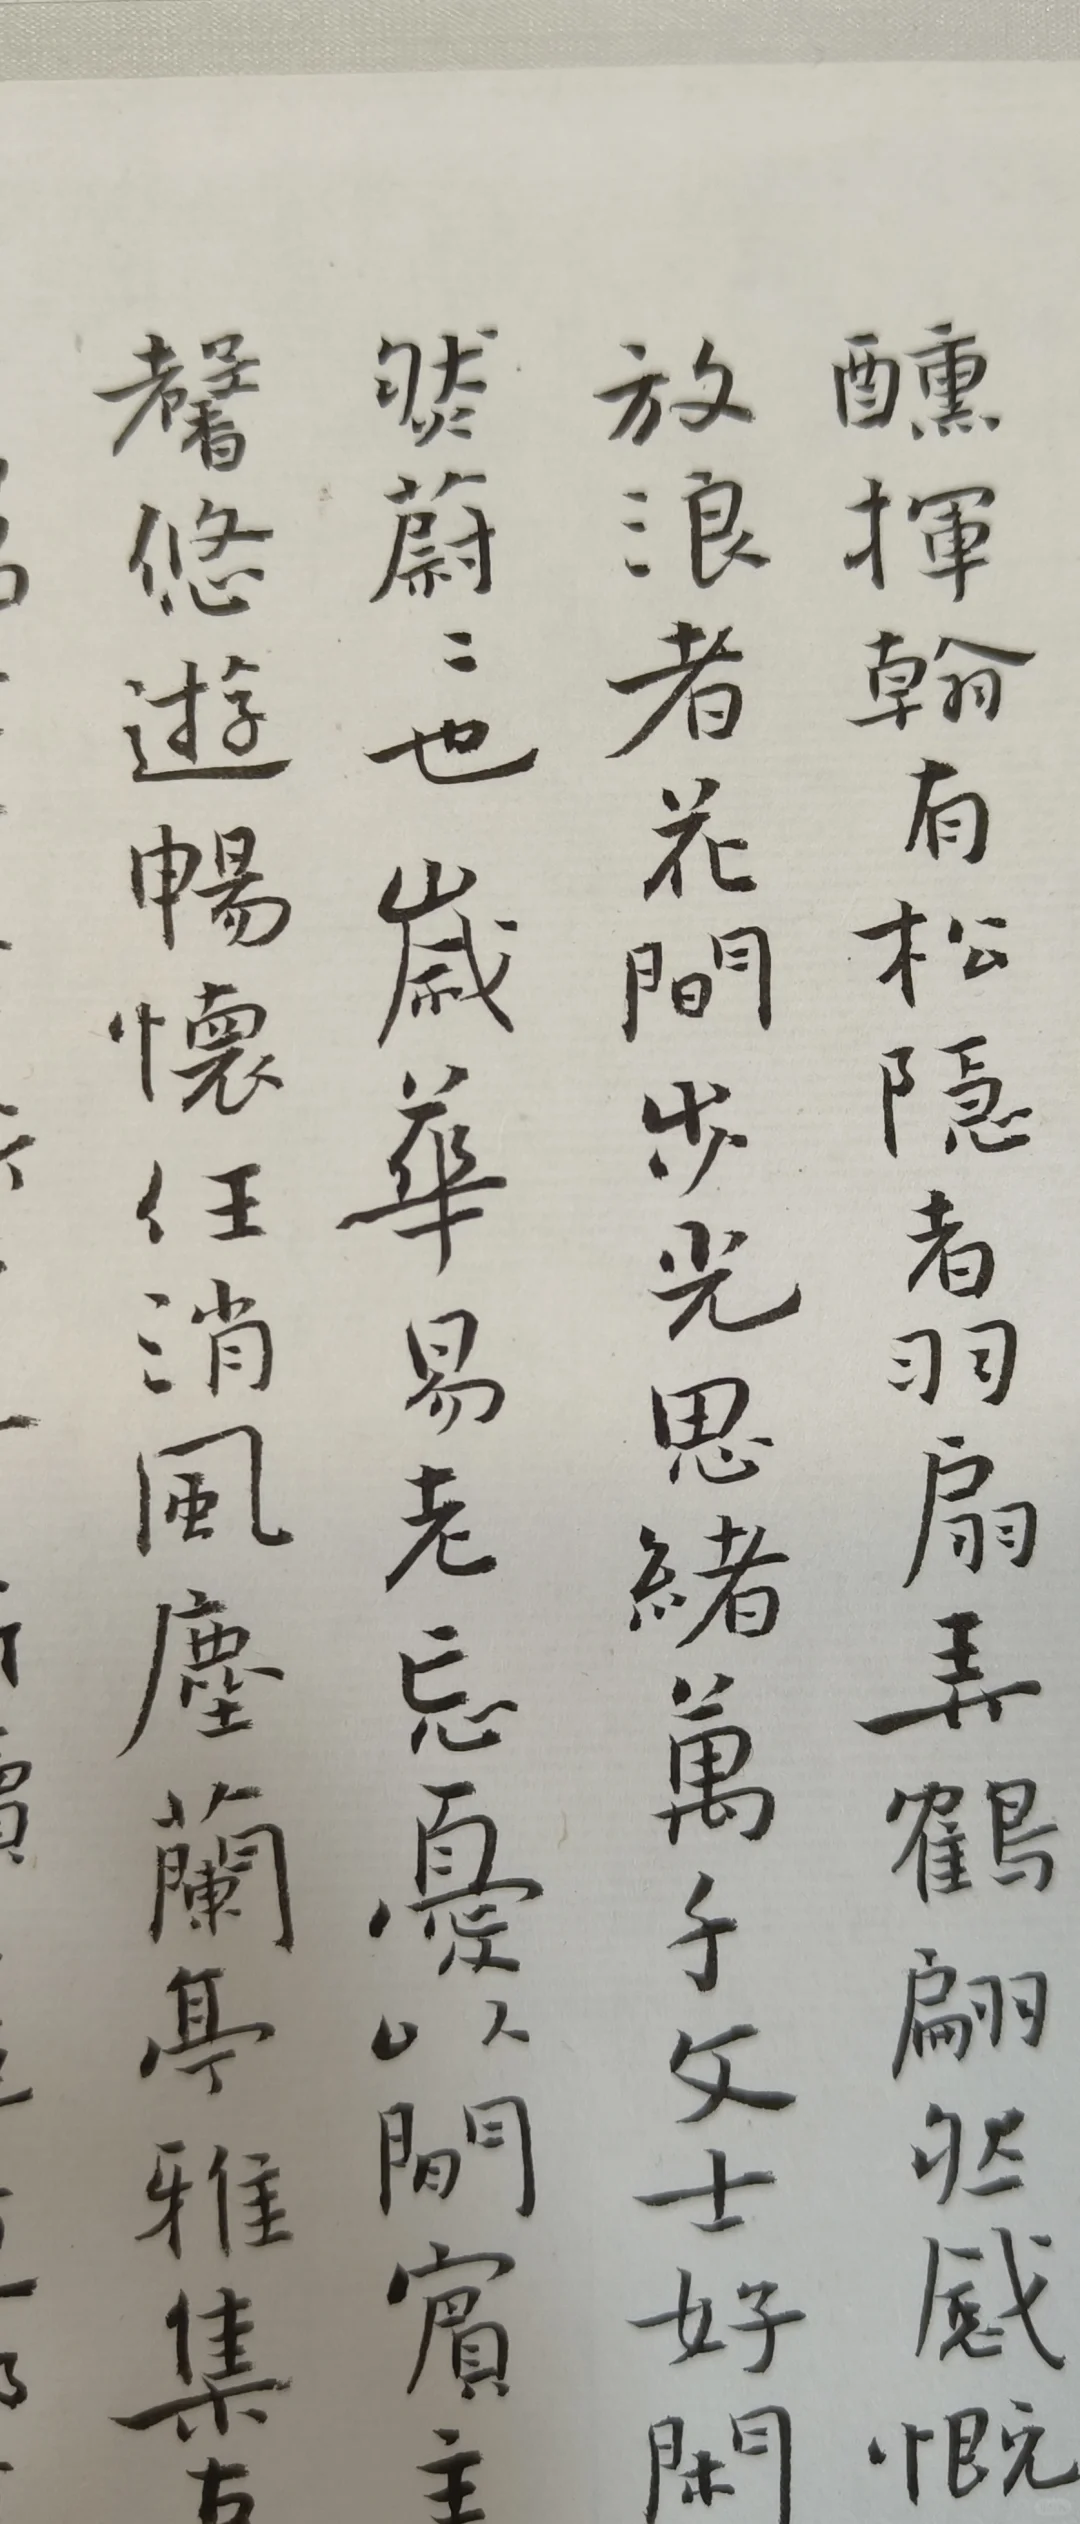 醺揮翰有松隱者羽扇弄鶴翩然感慨
放浪者花間步光思緒萬千文士好閑
然蔚〻也歲華易老忘憂以閒賓主
馨悠遊暢懷任消風塵蘭亭雅集古